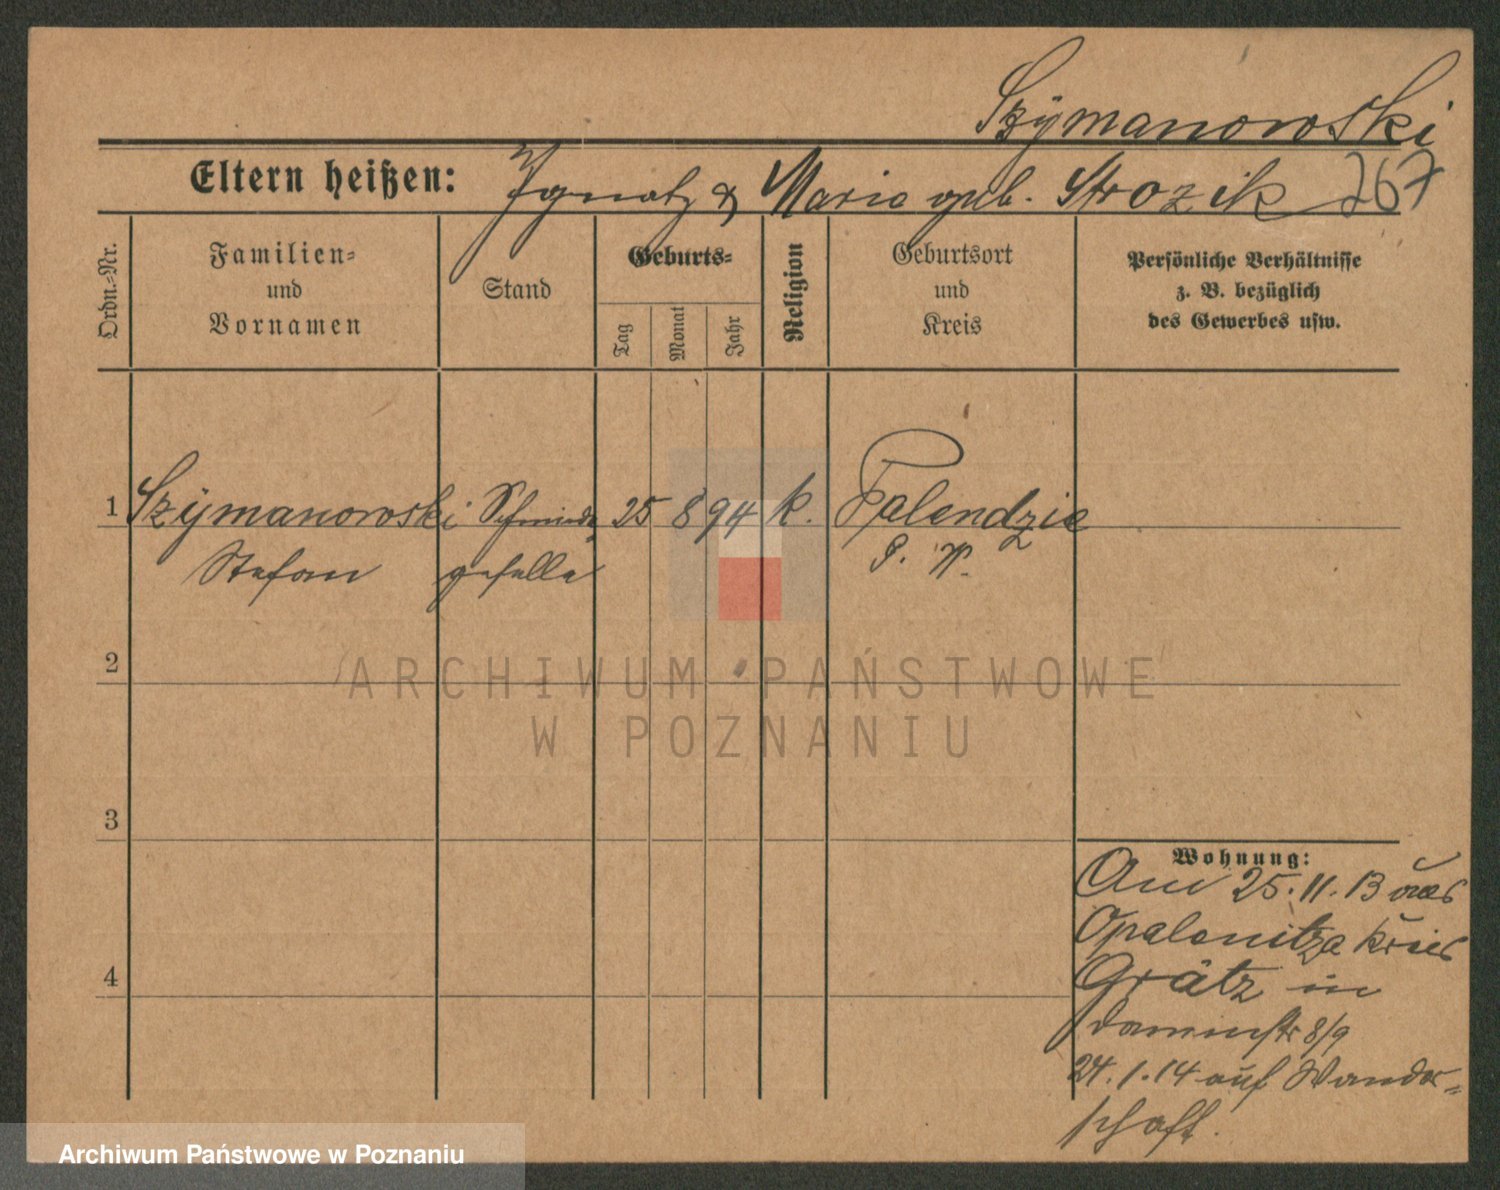 Szymanowski
Eltern heißen: Ignatz & Marie geb. Strozik 267
Ordn.=Nr.
Familien=
und
Vornamen
Stand
Geburts=
Tag
Monat
Jahr
Religion
Geburtsort
und
Kreis
Persönliche Verhältnisse
z. B. bezüglich
des Gewerbes usw.
1 Szymanowski Schmiede 25 8 94 k. Talendzie
Stefan geselle
2
3
4
Wohnung:
Am 25.11.13 aus
Opalenitza Kreis
Grätz in
Dammstr 8/9
24.1.14 auf Wander=
schaft.
ARCHIWUM PAŃSTWOWE
W POZNANIU
Archiwum Państwowe w Poznaniu